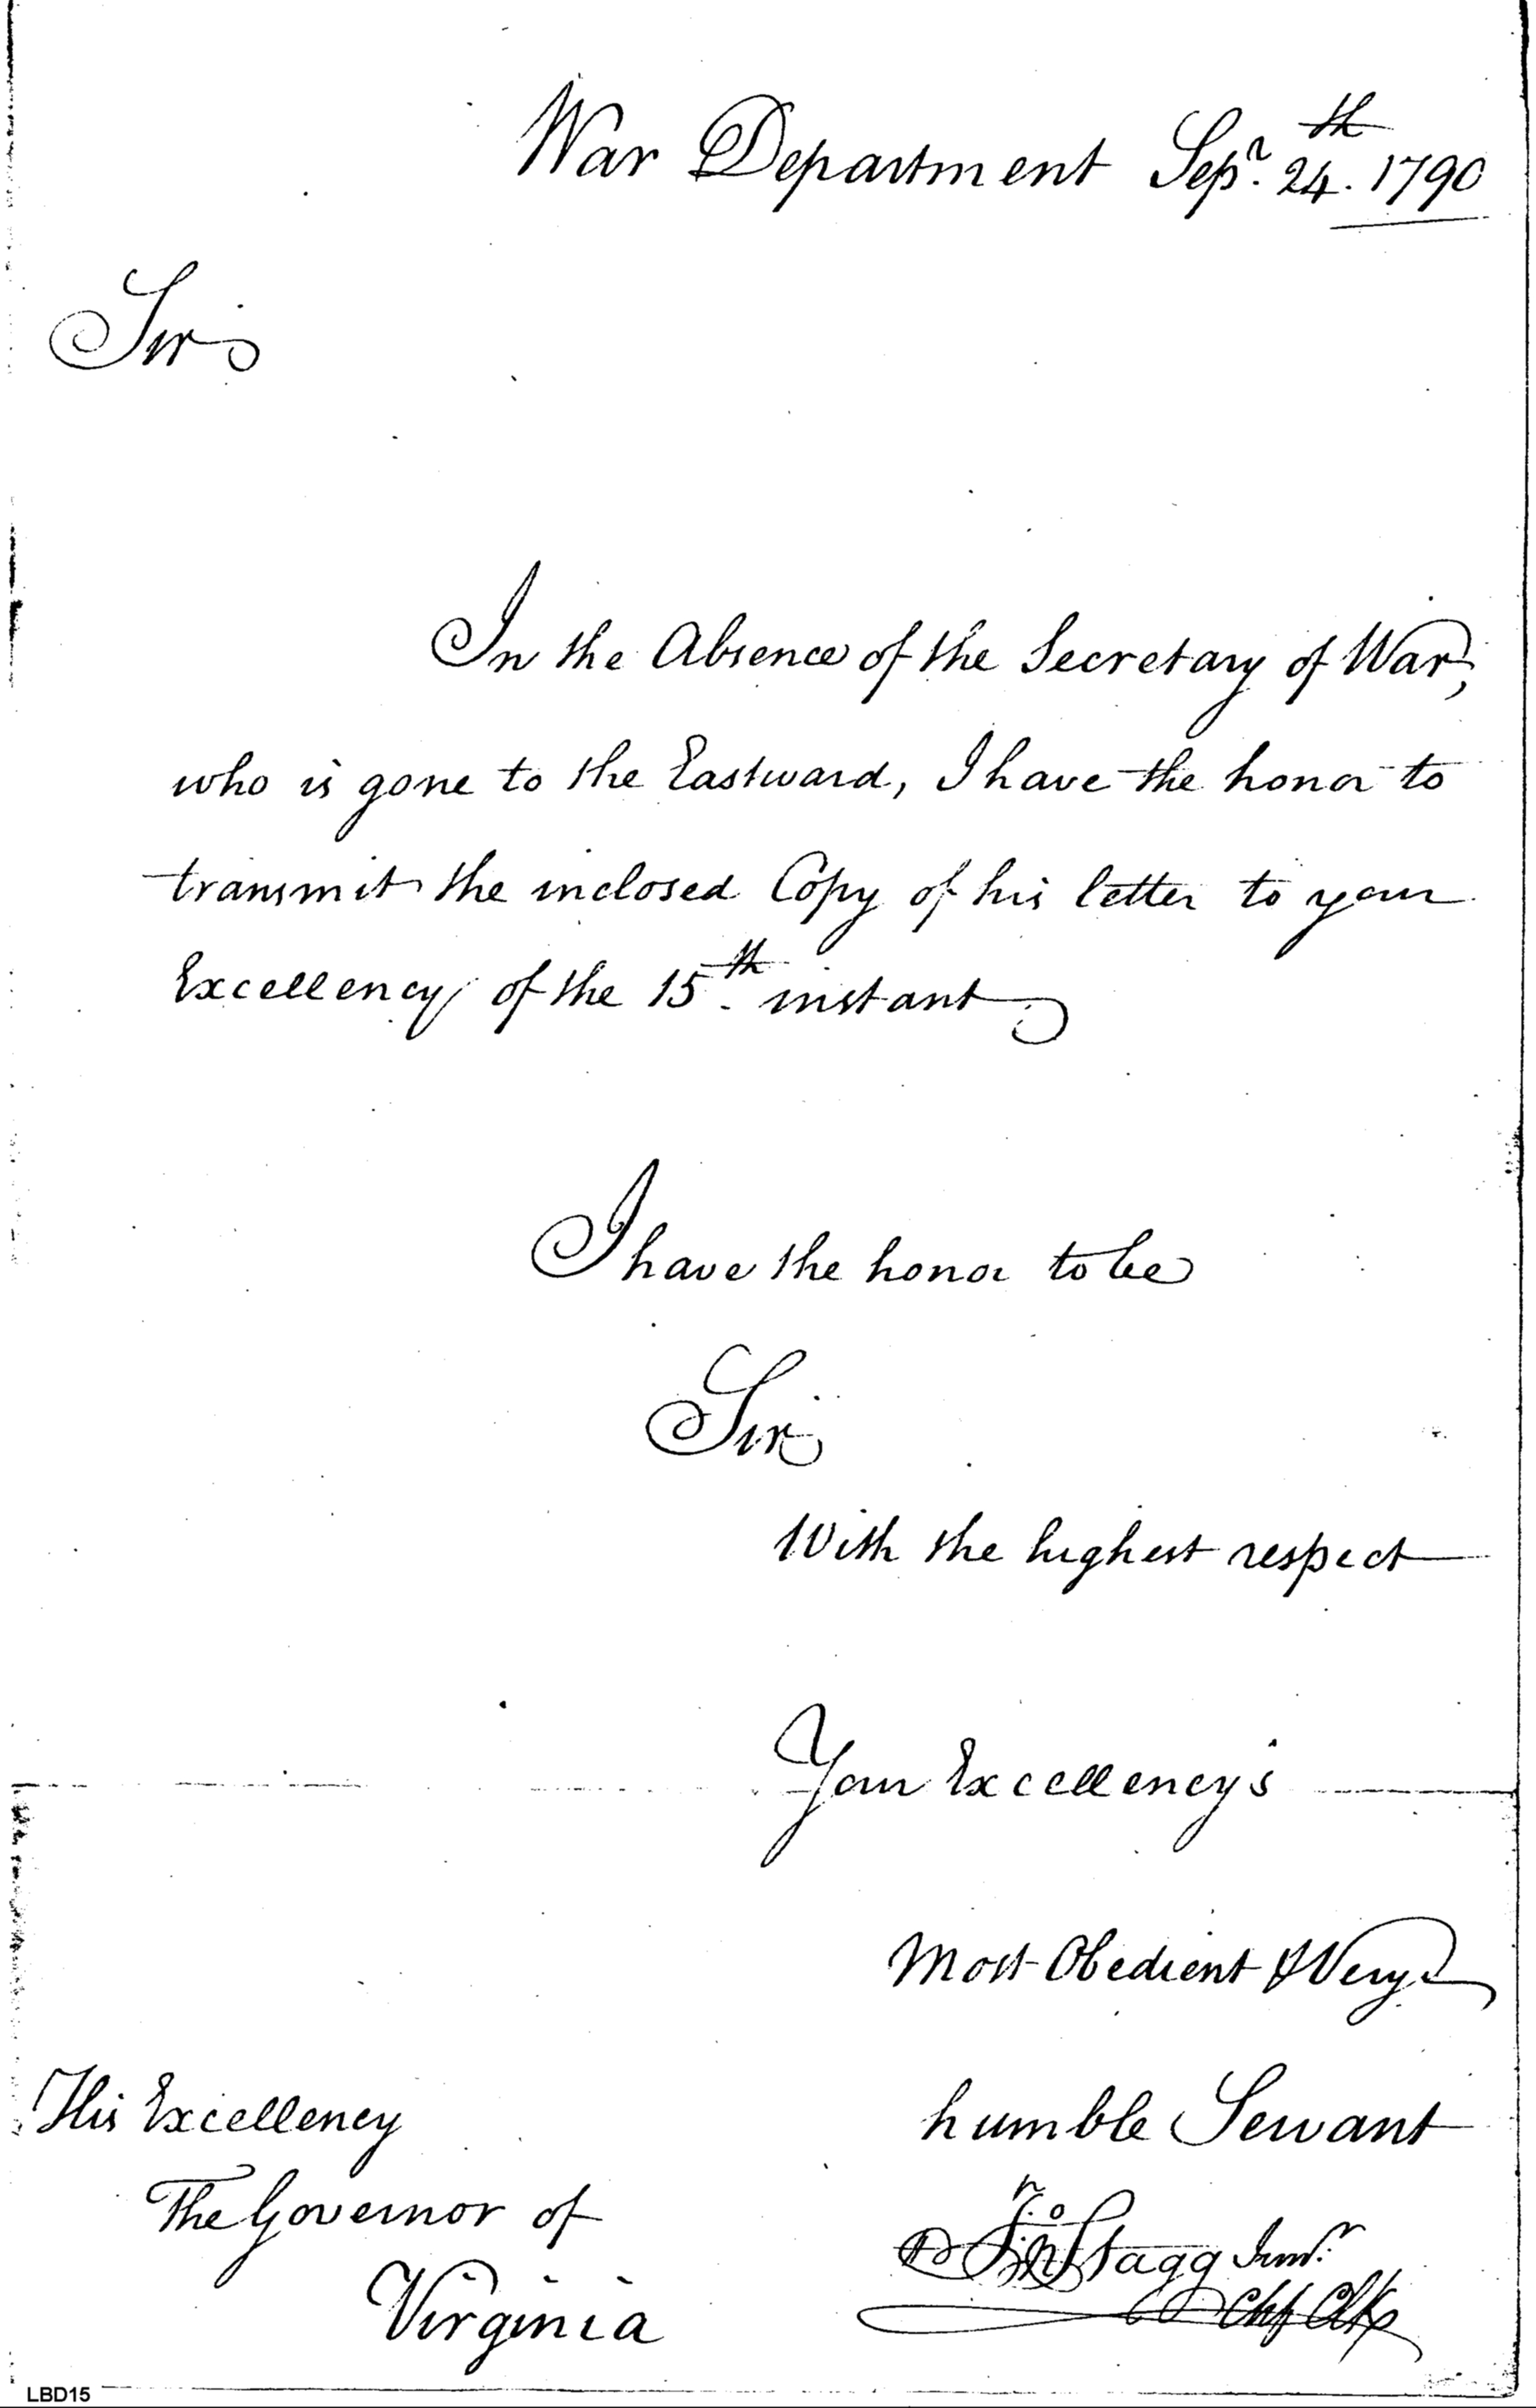 War Department Sepr. 24th. 1790
Sir
In the Absence of the Secretary of War,
who is gone to the Eastward, I have the honor to
transmit the inclosed Copy of his letter to your
Excellency of the 15th. instant
I have the honor to be
Sir
With the highest respect
Your Excellency's
Most Obedient & Very
humble Servant
Jno Stagg Junr.
Chf Clk
His Excellency
The Governor of
Virginia
LBD15